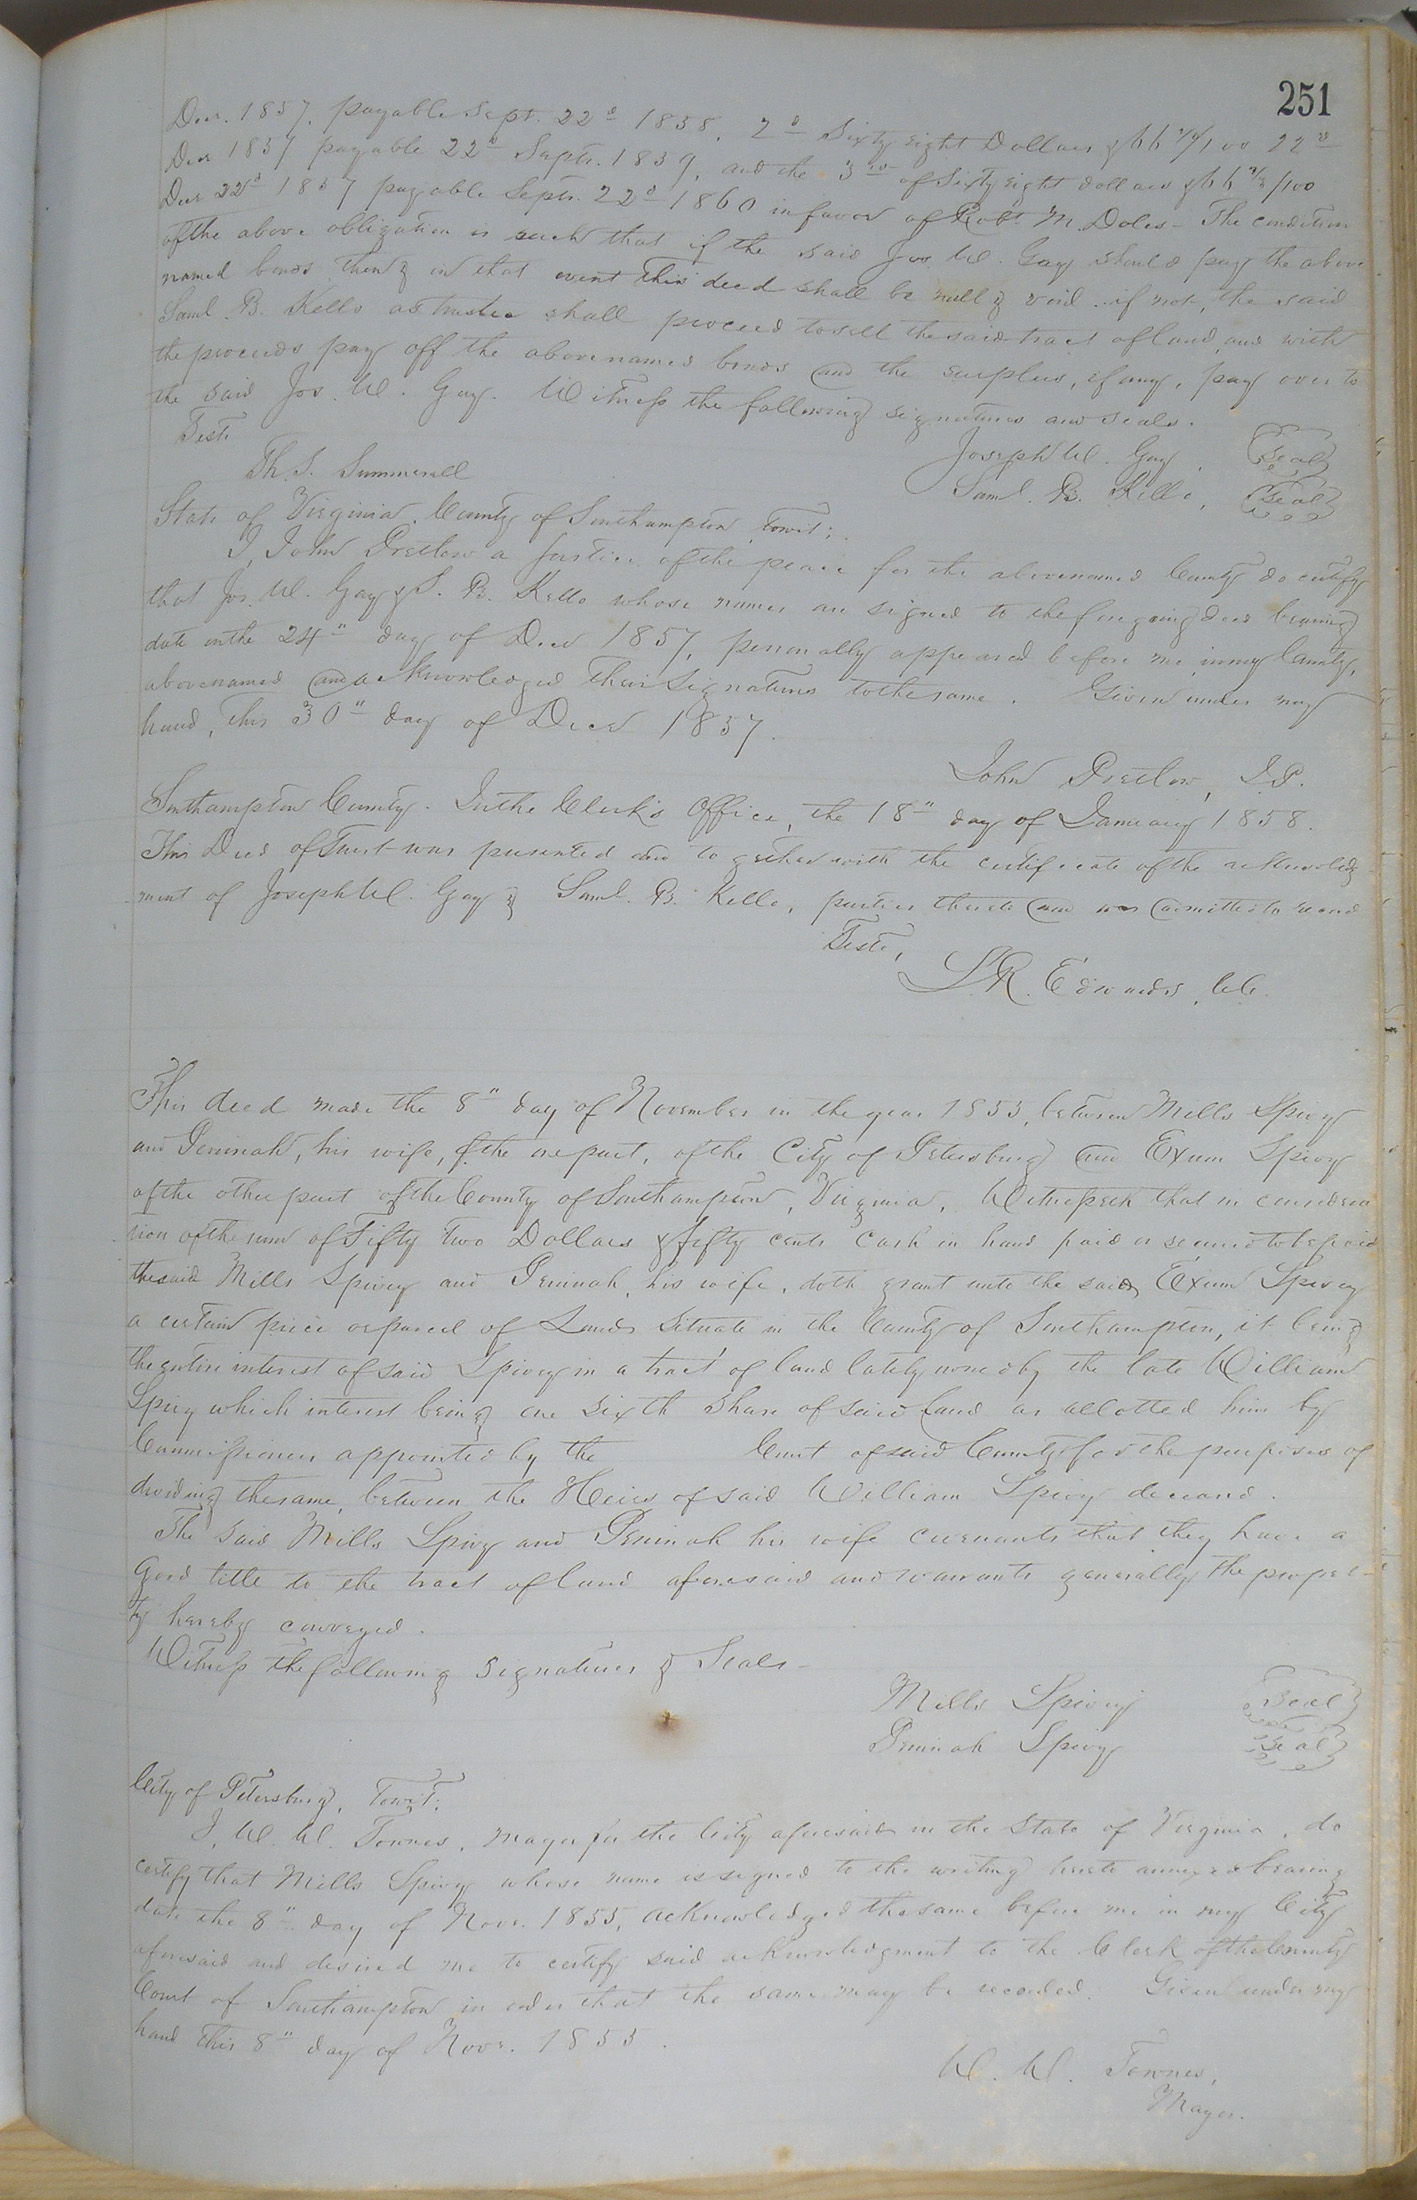 251
Decr. 1857, payable Sept. 22d 1858. 2d Sixty eight Dollars & 66 2/3/100 22d
Decr 1857 payable 22d Septr. 1859, and the 3rd of Sixty eight dollars & 66 2/3/100
Decr 22d 1857 payable Septr. 22d 1860 in favor of Robt. M. Doles - The condition
of the above obligation is such that if the said Jos. W. Gay should pay the above
named bonds then & in that event this deed shall be null & void. if not, the said
Saml. B. Kello as trustee shall proceed to sell the said tract of land, and with
the proceeds pay off the above named bonds and the surplus, if any, pay over to
the said Jos. W. Gay. Witness the following signatures and seals.
Teste
Joseph W. Gay, Seal
Th. S. Summerell
Saml. B. Kello, Seal
State of Virginia, County of Southampton, towit;
I, John Pretlow a Justice of the peace for the abovenamed County do certify
that Jos. W. Gay & S. B. Kello whose names are signed to the foregoing deed bearing
date on the 24" day of Decr 1857, personally appeared before me in my County,
abovenamed and acknowledged their signatures to the same. Given under my
hand, this 30" day of Decr 1857.
John Pretlow, J.P.
Southampton County. In the Clerk's Office, the 18" day of January 1858.
This Deed of Trust was presented and together with the certificate of the acknowledg
ment of Joseph W. Gay & Saml. B. Kello, parties thereto and was admitted to record
Teste,
L. R. Edwards, CC.
This deed made the 8" day of November in the year 1855, between Mills Spivey
and Peninah, his wife, of the one part, of the City of Petersburg and Exum Spivey
of the other part of the County of Southampton, Virginia, Witnesseth that in considera
tion of the sum of Fifty two Dollars & fifty cents cash in hand paid or secured to be paid
the said Mills Spivey and Peninah, his wife, doth grant unto the said Exum Spivey
a certain piece or parcel of Land situate in the County of Southampton, it being
the entire interest of said Spivey in a tract of land lately owned by the late William
Spivey which interest being one sixth share of said land as allotted him by
Commissioners appointed by the Court of said County for the purposes of
dividing the same, between the Heirs of said William Spivey deceased.
The said Mills Spivey and Peninah his wife covenants that they have a
good title to the tract of land aforesaid and warrants generally the proper-
ty hereby conveyed.
Witness the following signatures & Seals-
Mills Spivey Seal
Peninah Spivey Seal
City of Petersburg, Towit;
I, W. W. Townes, mayor for the City aforesaid in the State of Virginia, do
certify that Mills Spivey whose name is signed to the writing hereto annexed bearing
date the 8" day of Novr. 1855, acknowledged the same before me in my City
aforesaid and desired me to certify said acknowledgment to the Clerk of the County
Court of Southampton in order that the same may be recorded. Given under my
hand this 8" day of Novr. 1855.
W. W. Townes,
Mayor.